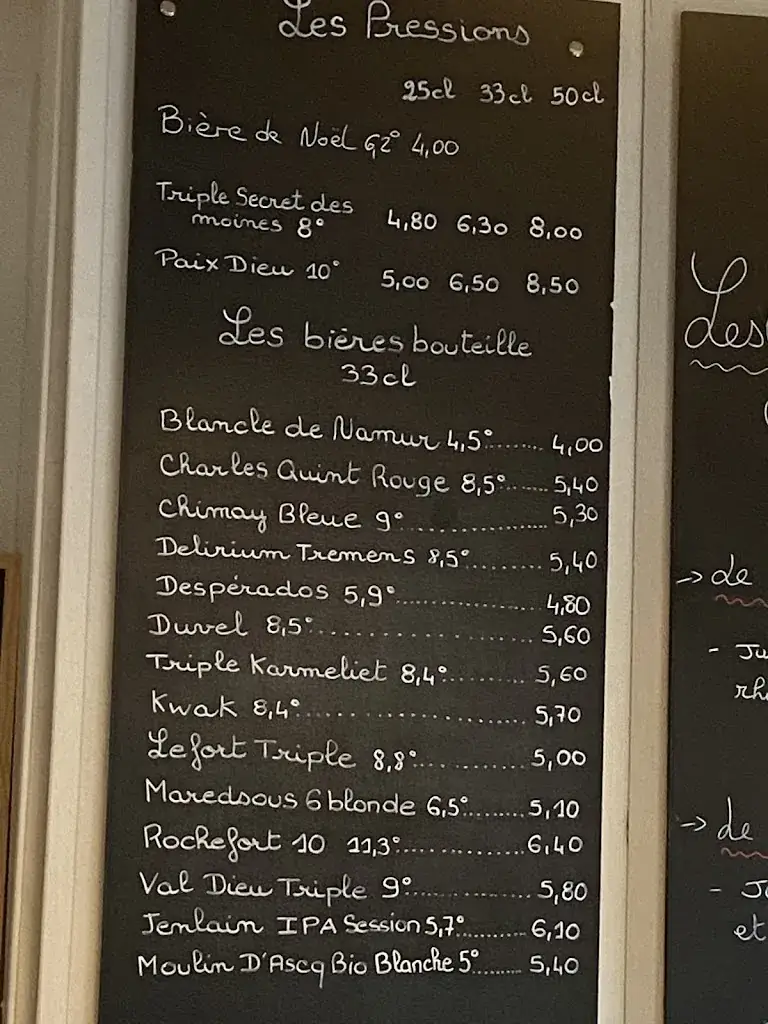 Les Pressions
25cl 33cl 50cl
Bière de Noël 6,2° 4,00
Triple Secret des
moines 8° 4,80 6,30 8,00
Paix Dieu 10° 5,00 6,50 8,50
Les bières bouteille
33cl
Blancle de Namur 4,5°........ 4,00
Charles Quint Rouge 8,5°....... 5,40
Chimay Bleue 9°.................. 5,30
Delirium Tremens 8,5°......... 5,40
Despérados 5,9°.................. 4,80
Duvel 8,5°....................... 5,60
Triple Karmeliet 8,4°.......... 5,60
Kwak 8,4°........................ 5,70
Lefort Triple 8,8°.............. 5,00
Maredsous 6 blonde 6,5°........ 5,10
Rochefort 10 11,3°.............. 6,40
Val Dieu Triple 9°.............. 5,80
Jenlain IPA Session 5,7°........ 6,10
Moulin D'Ascq Bio Blanche 5°........ 5,40
Les
→ de
- Ju
rh
→ de
- J
et